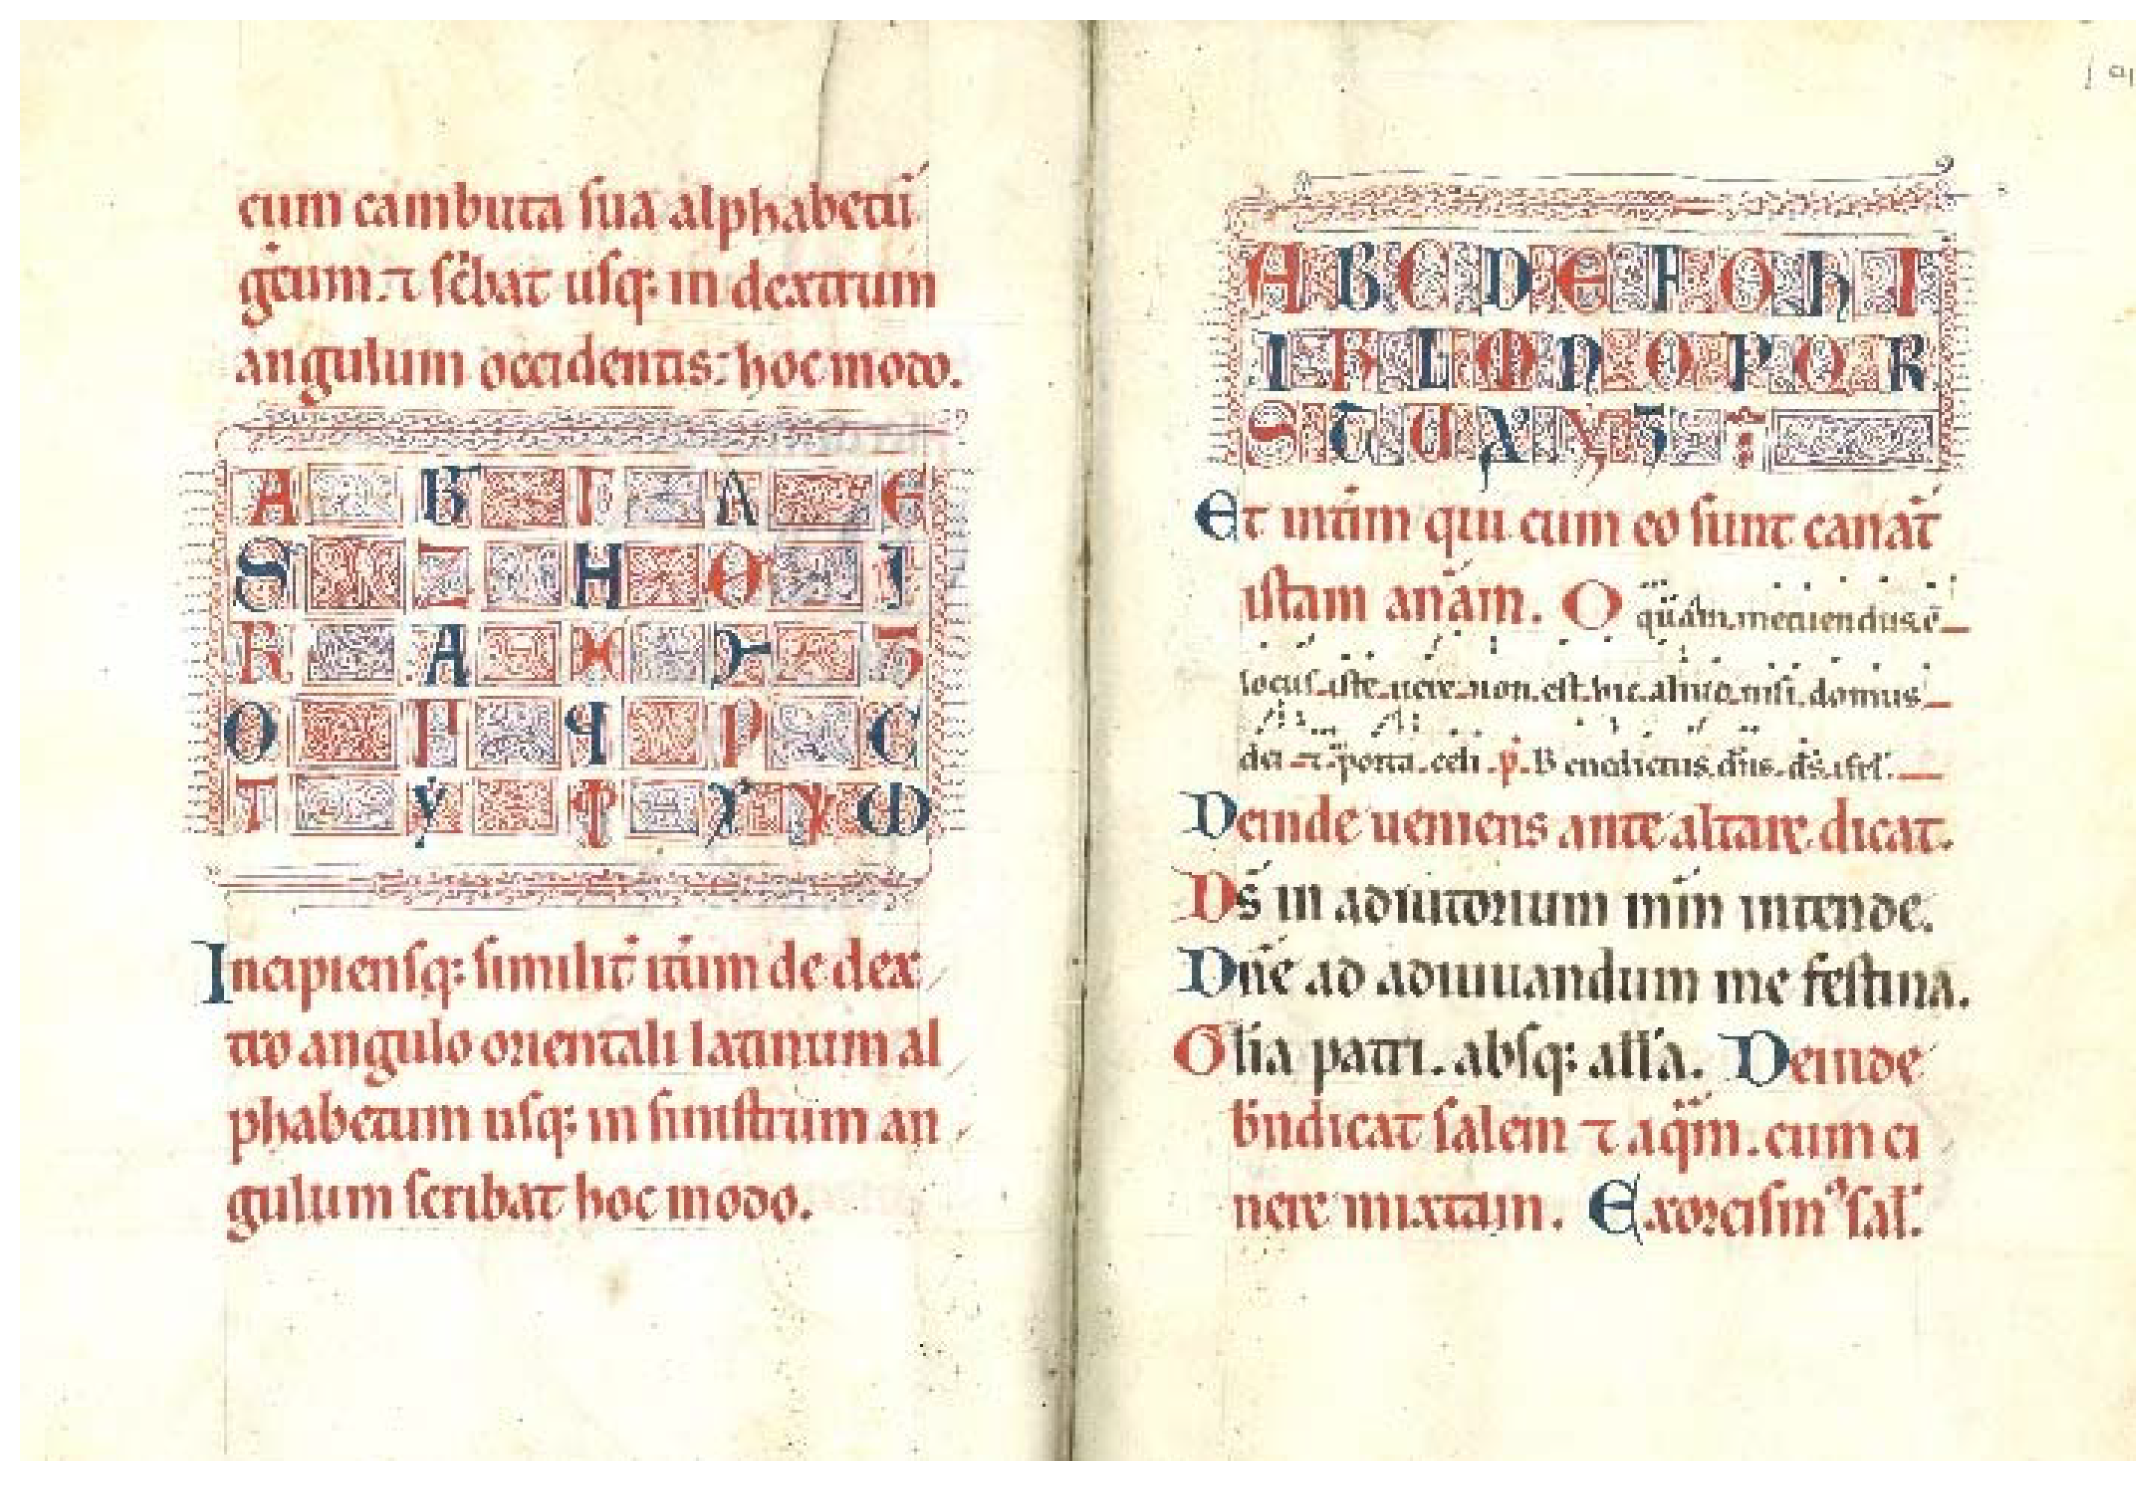 cum cambuta sua alphabetū
gͨcum. ⁊ sc̄bat usq; in dextrum
angulum occidentis: hoc modo.
A B Γ Λ E
S Z H Θ I
K A X Y Z
O Π Ϥ P C
T Y Φ X Y Ѡ
Incipiensq; similit̄ it̄um de dex
tro angulo orientali latinum al
phabetum usq; in sinistrum an
gulum scribat hoc modo.
A B C D E F G h I
I K L M N O P Q R
S T U X Y Z
Et int̄im qui cum eo sunt canāt
istam anām. O quām. metuendus. ē
locus. iste. uere. non. est. hic. aliud. nisi. domus
dei ⁊ porta. celi. p̄. Benedictus. dn̄s. ds̄. isrl̄.
Deinde ueniens ante altare dicat.
Ds̄ in adiutorium mm̄ intende.
Dn̄e ad adiuuandum me festina.
Glīa patri. absq; all̄a. Deinde
bn̄dicat salem ⁊ aq̄m. cum ci
nere mixtam. Exorcismꝰ sal̄.